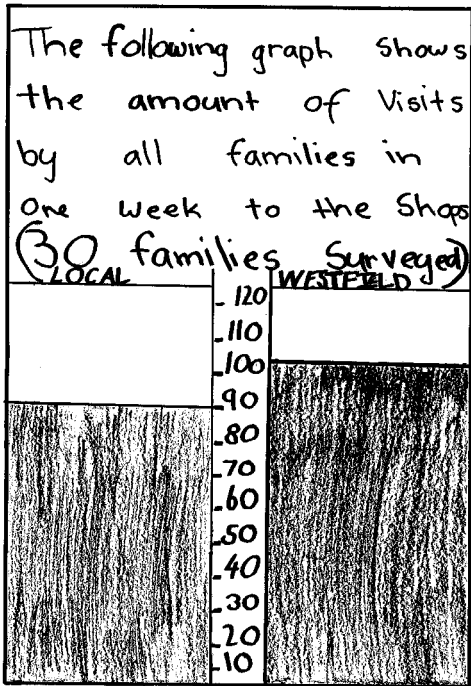 The following graph shows
the amount of Visits
by all families in
One week to the Shops
(30 families Surveyed)
LOCAL WESTFIELD
120
110
100
90
80
70
60
50
40
30
20
10